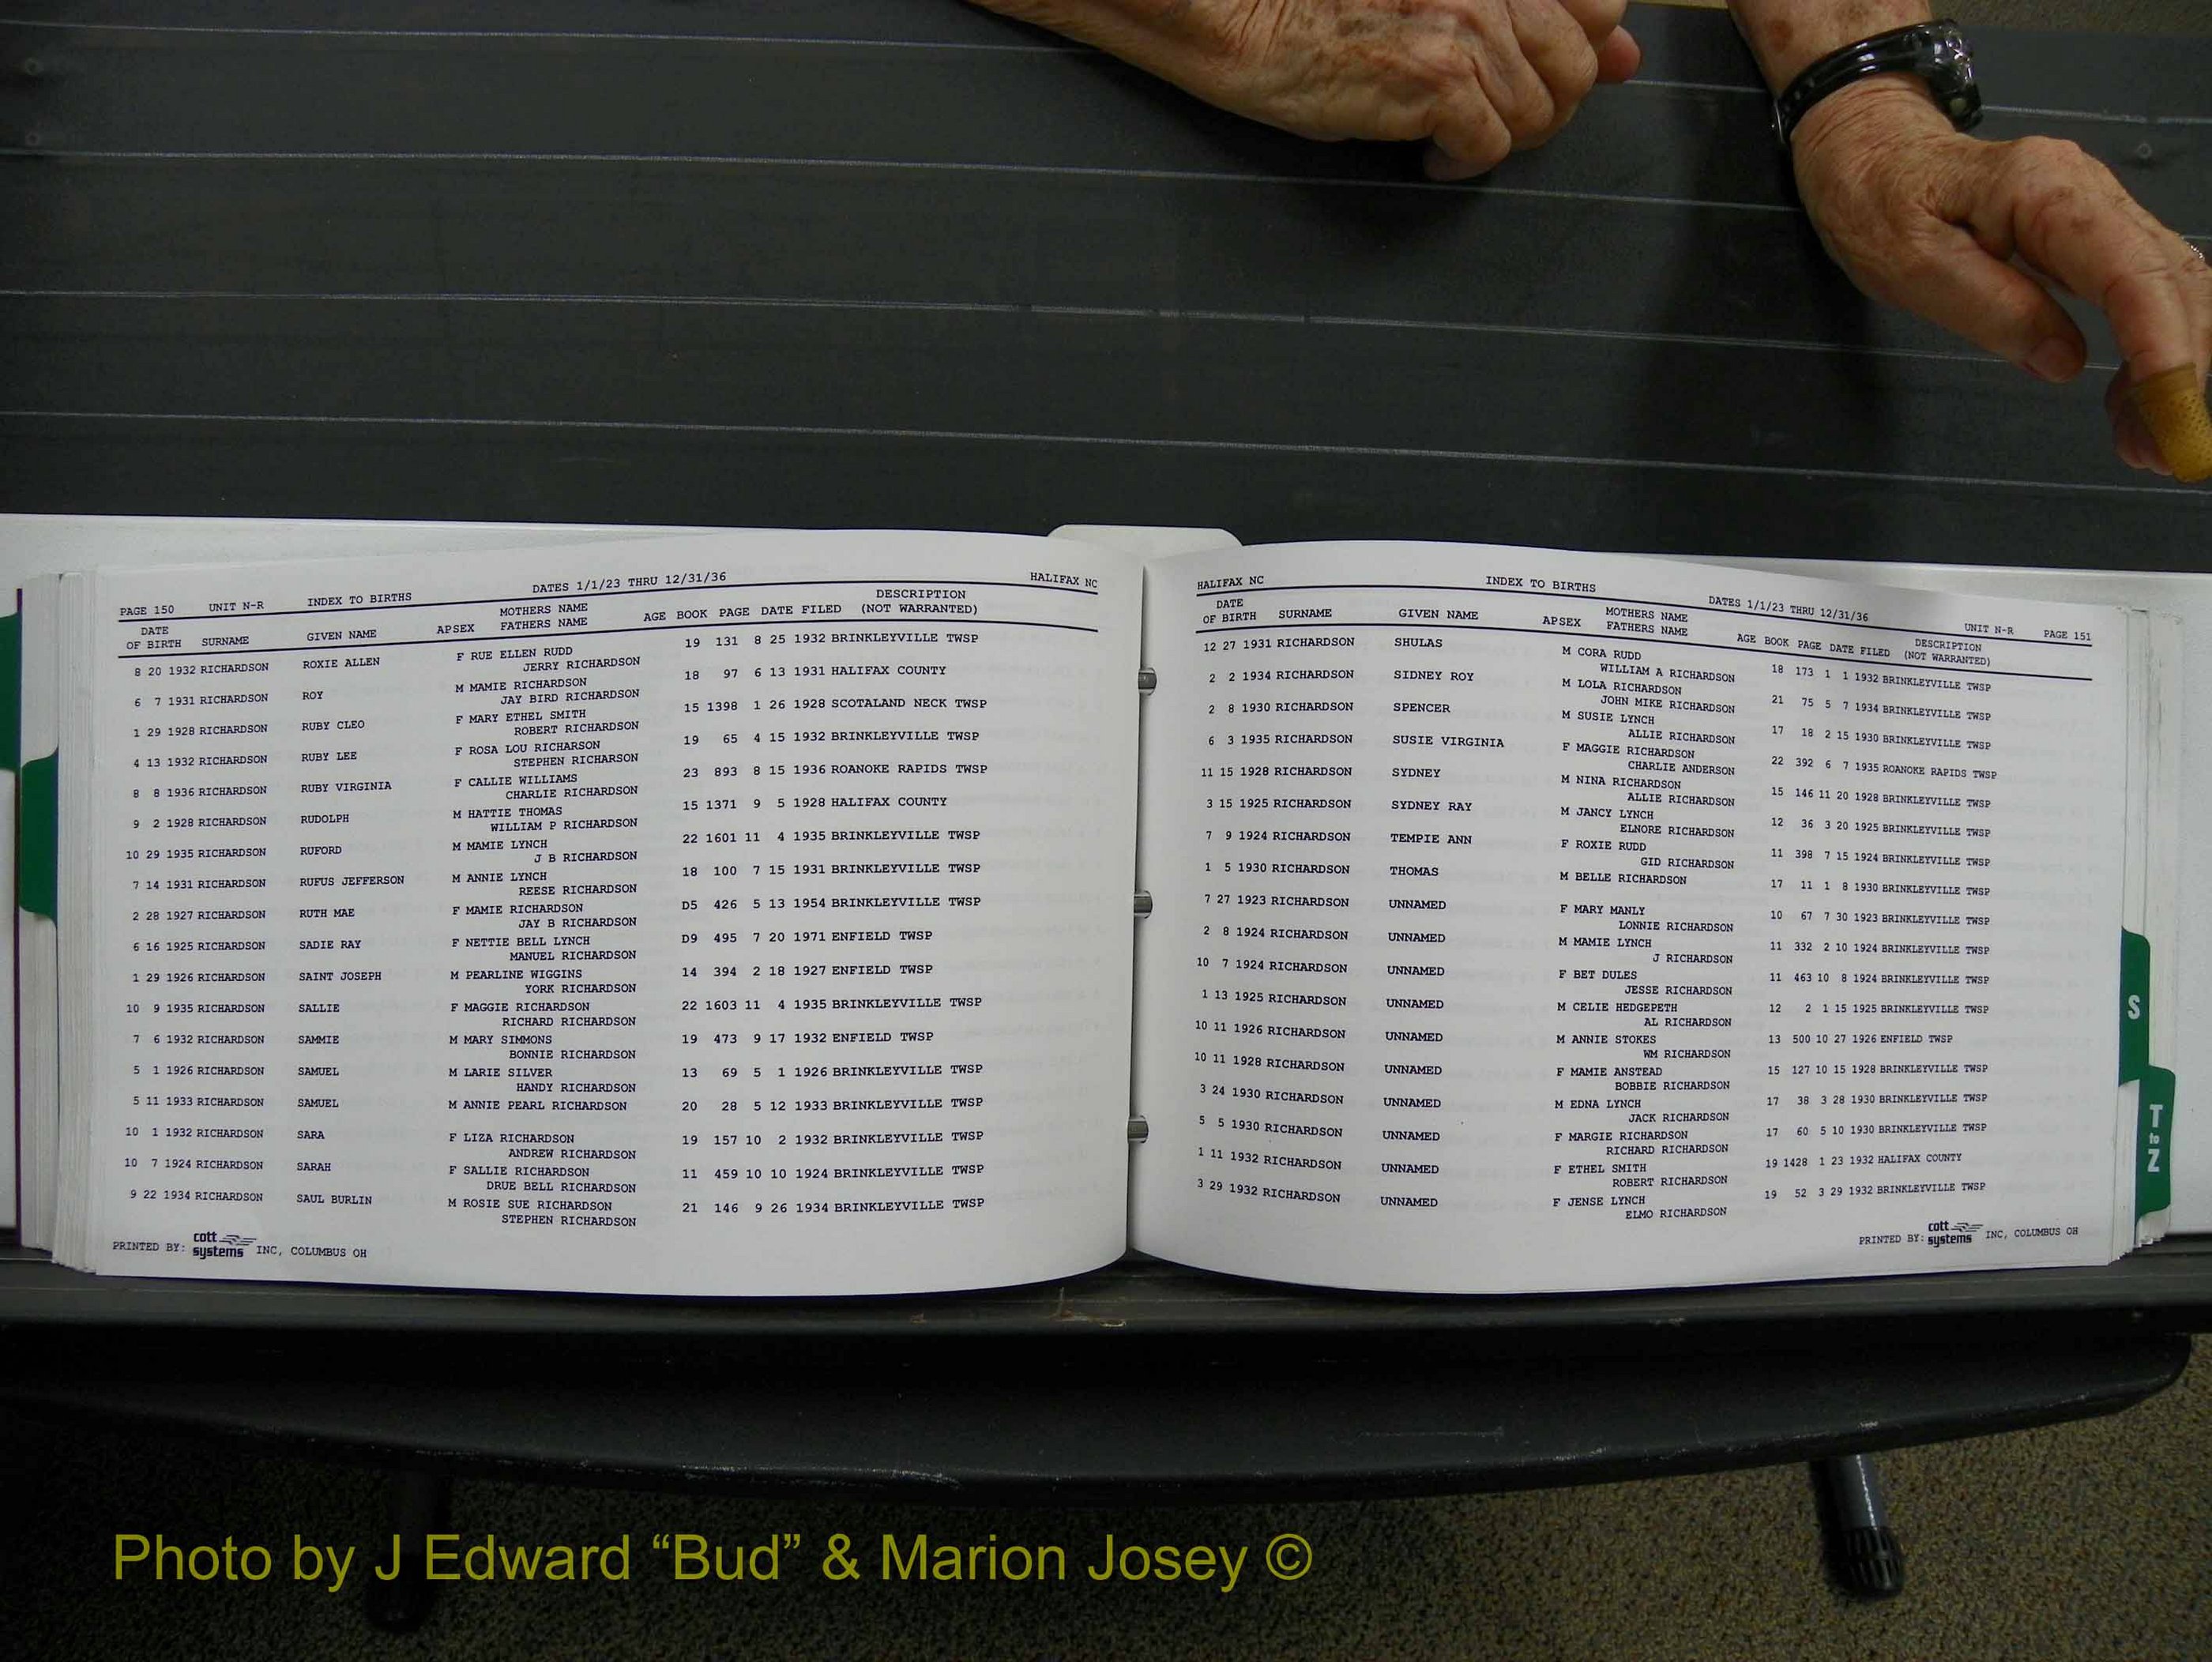 PAGE 150 UNIT N-R INDEX TO BIRTHS DATES 1/1/23 THRU 12/31/36 HALIFAX NC
DATE OF BIRTH SURNAME GIVEN NAME APSEX MOTHERS NAME FATHERS NAME AGE BOOK PAGE DATE FILED DESCRIPTION (NOT WARRANTED)
8 20 1932 RICHARDSON ROXIE ALLEN F RUE ELLEN RUDD 19 131 8 25 1932 BRINKLEYVILLE TWSP
JERRY RICHARDSON
6 7 1931 RICHARDSON ROY M MAMIE RICHARDSON 18 97 6 13 1931 HALIFAX COUNTY
JAY BIRD RICHARDSON
1 29 1928 RICHARDSON RUBY CLEO F MARY ETHEL SMITH 15 1398 1 26 1928 SCOTALAND NECK TWSP
ROBERT RICHARDSON
4 13 1932 RICHARDSON RUBY LEE F ROSA LOU RICHARSON 19 65 4 15 1932 BRINKLEYVILLE TWSP
STEPHEN RICHARSON
8 8 1936 RICHARDSON RUBY VIRGINIA F CALLIE WILLIAMS 23 893 8 15 1936 ROANOKE RAPIDS TWSP
CHARLIE RICHARDSON
9 2 1928 RICHARDSON RUDOLPH M HATTIE THOMAS 15 1371 9 5 1928 HALIFAX COUNTY
WILLIAM P RICHARDSON
10 29 1935 RICHARDSON RUFORD M MAMIE LYNCH 22 1601 11 4 1935 BRINKLEYVILLE TWSP
J B RICHARDSON
7 14 1931 RICHARDSON RUFUS JEFFERSON M ANNIE LYNCH 18 100 7 15 1931 BRINKLEYVILLE TWSP
REESE RICHARDSON
2 28 1927 RICHARDSON RUTH MAE F MAMIE RICHARDSON D5 426 5 13 1954 BRINKLEYVILLE TWSP
JAY B RICHARDSON
6 16 1925 RICHARDSON SADIE RAY F NETTIE BELL LYNCH D9 495 7 20 1971 ENFIELD TWSP
MANUEL RICHARDSON
1 29 1926 RICHARDSON SAINT JOSEPH M PEARLINE WIGGINS 14 394 2 18 1927 ENFIELD TWSP
YORK RICHARDSON
10 9 1935 RICHARDSON SALLIE F MAGGIE RICHARDSON 22 1603 11 4 1935 BRINKLEYVILLE TWSP
RICHARD RICHARDSON
7 6 1932 RICHARDSON SAMMIE M MARY SIMMONS 19 473 9 17 1932 ENFIELD TWSP
BONNIE RICHARDSON
5 1 1926 RICHARDSON SAMUEL M LARIE SILVER 13 69 5 1 1926 BRINKLEYVILLE TWSP
HANDY RICHARDSON
5 11 1933 RICHARDSON SAMUEL M ANNIE PEARL RICHARDSON 20 28 5 12 1933 BRINKLEYVILLE TWSP
10 1 1932 RICHARDSON SARA F LIZA RICHARDSON 19 157 10 2 1932 BRINKLEYVILLE TWSP
ANDREW RICHARDSON
10 7 1924 RICHARDSON SARAH F SALLIE RICHARDSON 11 459 10 10 1924 BRINKLEYVILLE TWSP
DRUE BELL RICHARDSON
9 22 1934 RICHARDSON SAUL BURLIN M ROSIE SUE RICHARDSON 21 146 9 26 1934 BRINKLEYVILLE TWSP
STEPHEN RICHARDSON
PRINTED BY: cott systems INC, COLUMBUS OH
HALIFAX NC INDEX TO BIRTHS DATES 1/1/23 THRU 12/31/36 UNIT N-R PAGE 151
DATE OF BIRTH SURNAME GIVEN NAME APSEX MOTHERS NAME FATHERS NAME AGE BOOK PAGE DATE FILED DESCRIPTION (NOT WARRANTED)
12 27 1931 RICHARDSON SHULAS M CORA RUDD 18 173 1 1 1932 BRINKLEYVILLE TWSP
WILLIAM A RICHARDSON
2 2 1934 RICHARDSON SIDNEY ROY M LOLA RICHARDSON 21 75 5 7 1934 BRINKLEYVILLE TWSP
JOHN MIKE RICHARDSON
2 8 1930 RICHARDSON SPENCER M SUSIE LYNCH 17 18 2 15 1930 BRINKLEYVILLE TWSP
ALLIE RICHARDSON
6 3 1935 RICHARDSON SUSIE VIRGINIA F MAGGIE RICHARDSON 22 392 6 7 1935 ROANOKE RAPIDS TWSP
CHARLIE ANDERSON
11 15 1928 RICHARDSON SYDNEY M NINA RICHARDSON 15 146 11 20 1928 BRINKLEYVILLE TWSP
ALLIE RICHARDSON
3 15 1925 RICHARDSON SYDNEY RAY M JANCY LYNCH 12 36 3 20 1925 BRINKLEYVILLE TWSP
ELNORE RICHARDSON
7 9 1924 RICHARDSON TEMPIE ANN F ROXIE RUDD 11 398 7 15 1924 BRINKLEYVILLE TWSP
GID RICHARDSON
1 5 1930 RICHARDSON THOMAS M BELLE RICHARDSON 17 11 1 8 1930 BRINKLEYVILLE TWSP
7 27 1923 RICHARDSON UNNAMED F MARY MANLY 10 67 7 30 1923 BRINKLEYVILLE TWSP
LONNIE RICHARDSON
2 8 1924 RICHARDSON UNNAMED M MAMIE LYNCH 11 332 2 10 1924 BRINKLEYVILLE TWSP
J RICHARDSON
10 7 1924 RICHARDSON UNNAMED F BET DULES 11 463 10 8 1924 BRINKLEYVILLE TWSP
JESSE RICHARDSON
1 13 1925 RICHARDSON UNNAMED M CELIE HEDGEPETH 12 2 1 15 1925 BRINKLEYVILLE TWSP
AL RICHARDSON
10 11 1926 RICHARDSON UNNAMED M ANNIE STOKES 13 500 10 27 1926 ENFIELD TWSP
WM RICHARDSON
10 11 1928 RICHARDSON UNNAMED F MAMIE ANSTEAD 15 127 10 15 1928 BRINKLEYVILLE TWSP
BOBBIE RICHARDSON
3 24 1930 RICHARDSON UNNAMED M EDNA LYNCH 17 38 3 28 1930 BRINKLEYVILLE TWSP
JACK RICHARDSON
5 5 1930 RICHARDSON UNNAMED F MARGIE RICHARDSON 17 60 5 10 1930 BRINKLEYVILLE TWSP
RICHARD RICHARDSON
1 11 1932 RICHARDSON UNNAMED F ETHEL SMITH 19 1428 1 23 1932 HALIFAX COUNTY
ROBERT RICHARDSON
3 29 1932 RICHARDSON UNNAMED F JENSE LYNCH 19 52 3 29 1932 BRINKLEYVILLE TWSP
ELMO RICHARDSON
PRINTED BY: cott systems INC, COLUMBUS OH
S
T
to
Z
Photo by J Edward “Bud” & Marion Josey ©